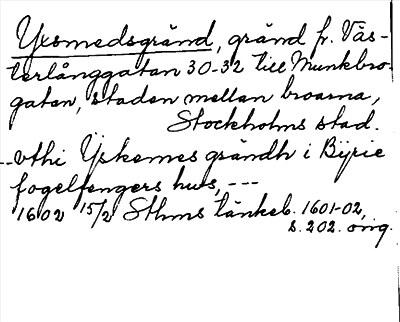 Yxsmedsgränd, gränd fr. Väs-
terlånggatan 30-32 till Munkbro-
gatan, staden mellan broarna,
Stockholms stad.
--vthi Yskemes grändh i Byrie
fogelfengers hus, ---
1602 15/2 Sthms tänkeb. 1601-02,
s. 202. orig.